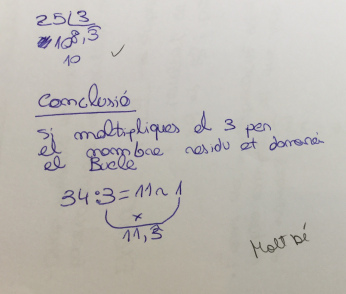 25 | 3
10 8,3
10
Conclusió
Si moltipliques el 3 per
el nombre residu et donarà
el Bucle
34:3=11 ~ 1
x
11,3
Molt bé